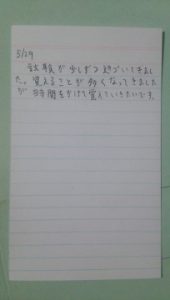 5/29
試験が少しずつ近づいてきまし
た。覚えることが多くなってきました
が時間をかけて覚えていきたいです。